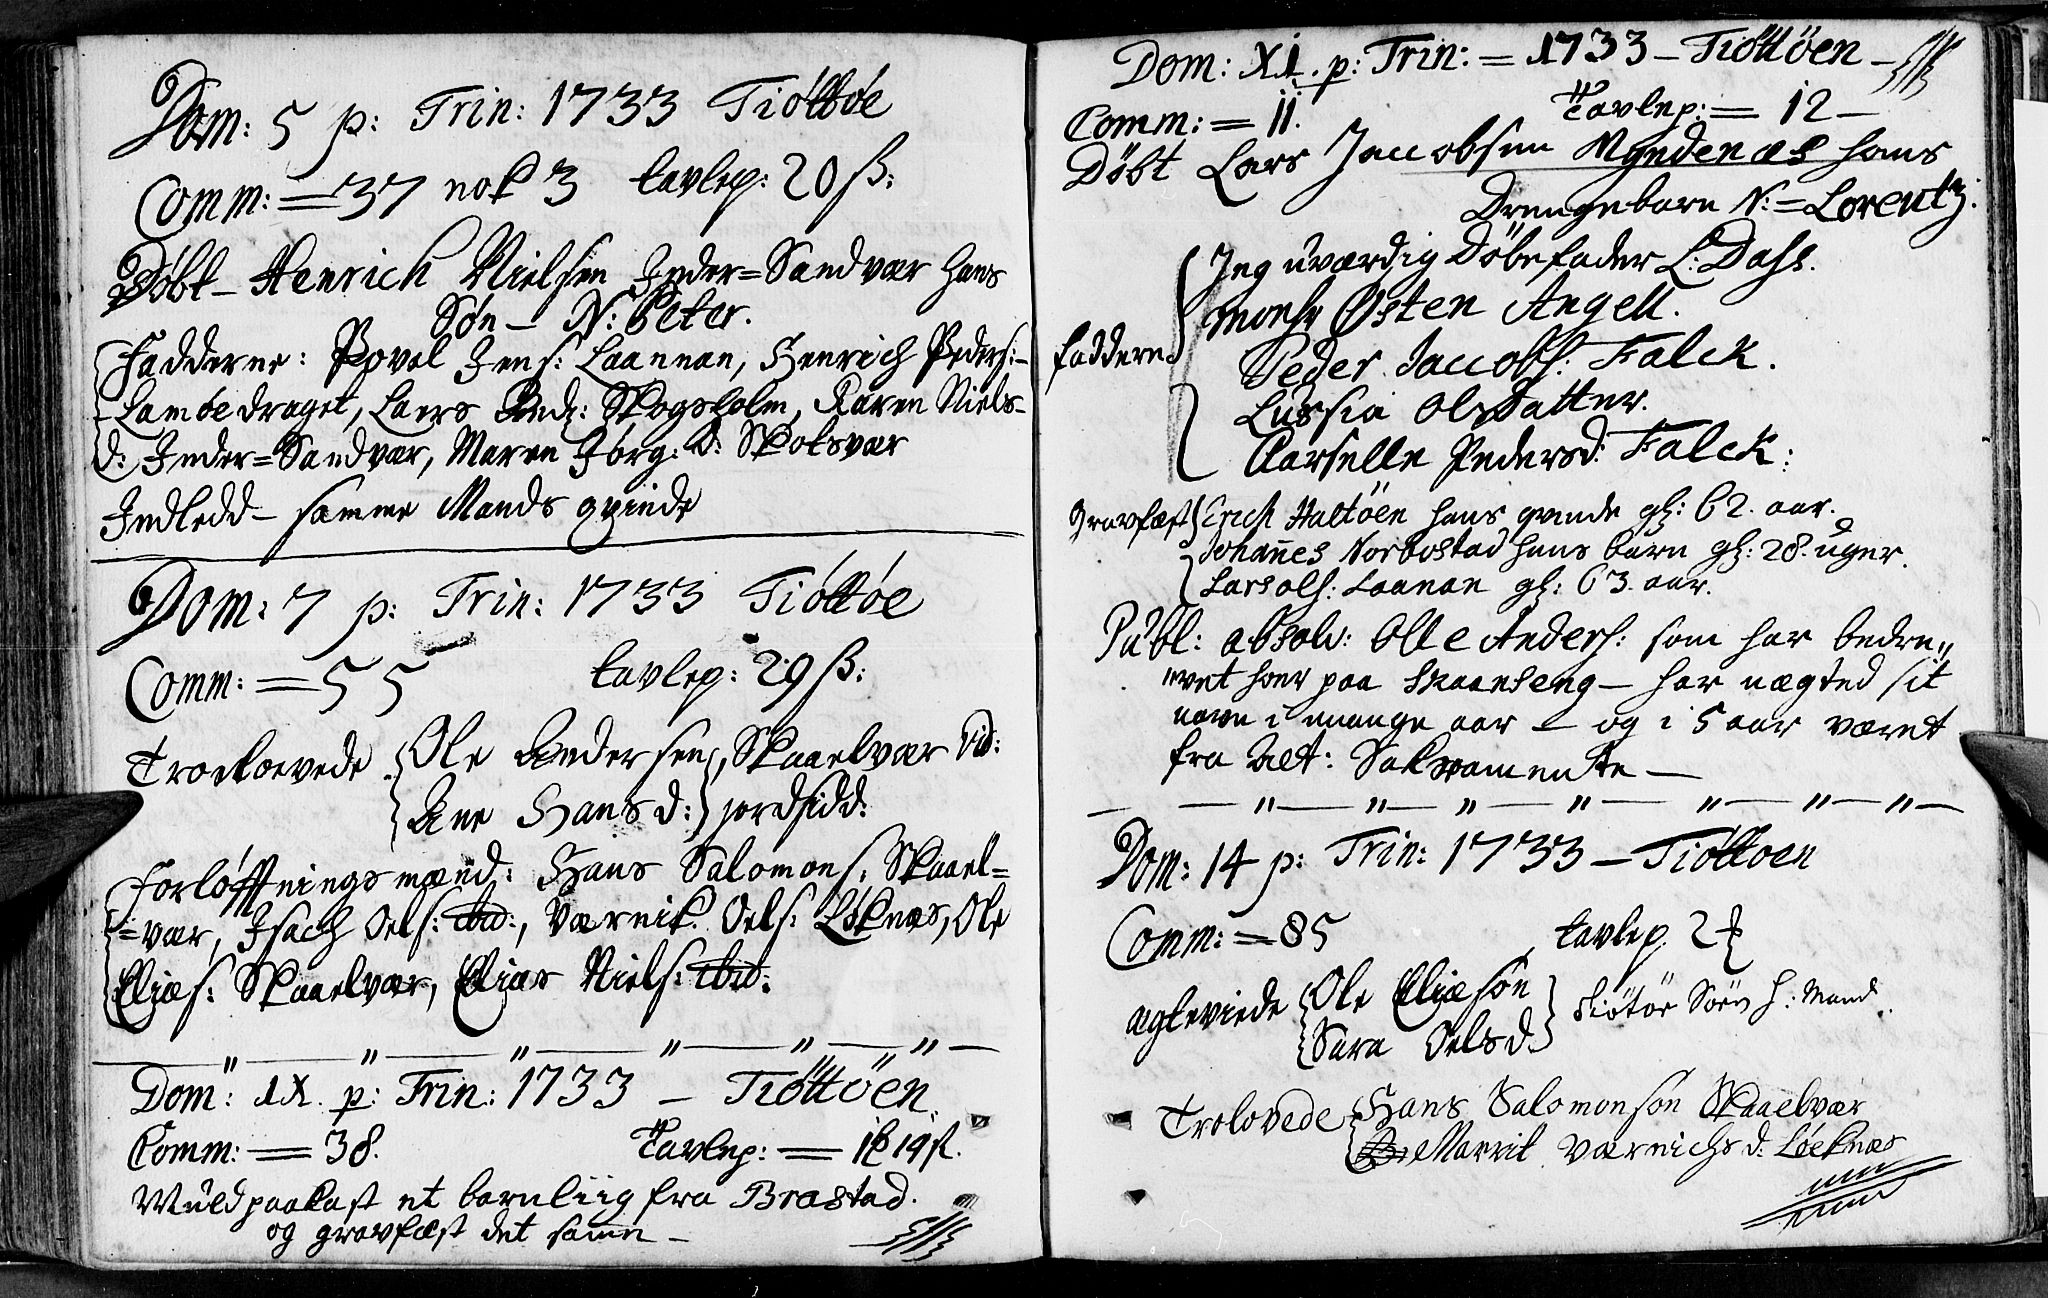 Dom: 5 p: Trin: 1733 Tiøttøe
Comm: = 37 nok 3 tavlep: 20 ß:
Døbt – Henrich Nielsen Inder=Sandvær hans
Søn – N: Peter.
Fadderne: Povel Jens: Laannan, Henrich Peders:
Lamøedraget, Laers And: Skogsholm, Karen Niels-
d: Inder=Sandvær, Maren Jørg: d: Skotsvær
Indledd – samme Mands qvinde
Dom: 7 p: Trin: 1733 Tiøttøe
Comm: = 55 tavlep: 29 ß:
Troeloevede Ole Andersen, Skaaelvær
Ane Hans d: jordsidd:
Forløfftningsmænd: Hans Salomons: Skaael=
=vær, Isach Oels: ibid:, Værnik Oels: Løknæs, Ole
Eliæs: Skaaelvær, Eliæs Niels: ibid:
Dom: IX. p: Trin: 1733 – Tiøttøen.
Comm: = 38. Tavlep: = 19 ß.
Muldpaakast et barnliig fra Brastad.
og gravfæst det samme –
Dom: XI. p: Trin: = 1733 – Tiøttøen –
Comm: = 11. Tavlep: = 12 –
Døbt Lars Jaccobsen Myndenæs hans
Drengebarn N: = Lorentz.
Faddere Jeg uværdig Døbefader L: Dass.
Monsr Østen Angell.
Peder Jaccobs: Falck.
Lussia Olsdatter.
Aarselle Pedersd: Falck:
Gravfæst Erich Haltøen hans qvinde gl: 62. aar.
Johannes Norbostad hans barn gl: 28. uger.
Lars ols: Laanan gl: 63. aar.
Publ: absolv: Olle Anders: som har bedre,,
,,vet hoer paa Skaanseng – har nægted sit
navn i mange aar – og i 5 aar været
fra Alt: Sakramente –
Dom: 14 p: Trin: 1733 – Tiøttoen
Comm: = 85 tavlep 2
Ægteviede Ole Eliæsøn
Sara Oels d: Tiøtøe Sørv h: Mand.
Trolovede Hans Salomonsøn Skaaelvær
Marrit Værnichs d: Løeknæs